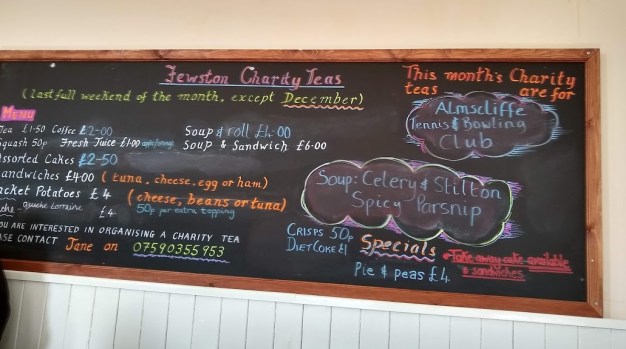 Fewston Charity Teas
(last full weekend of the month, except December)
MENU
Tea £1·50 Coffee £2-00
Squash 50p Fresh Juice £1·00
Assorted Cakes £2-50
Sandwiches £4·00 (tuna, cheese, egg or ham)
Jacket Potatoes £4 (cheese, beans or tuna)
50p per extra topping
Lorraine £4
YOU ARE INTERESTED IN ORGANISING A CHARITY TEA
ASE CONTACT Jane on 07590355953
Soup & roll £4·00
Soup & Sandwich £6·00
This month's Charity
teas are for
Almscliffe
Tennis & Bowling
Club
Soup: Celery & Stilton
Spicy Parsnip
CRISPS 50p
DIET COKE £1
Specials
Pie & peas £4
Take away cake available
& sandwiches